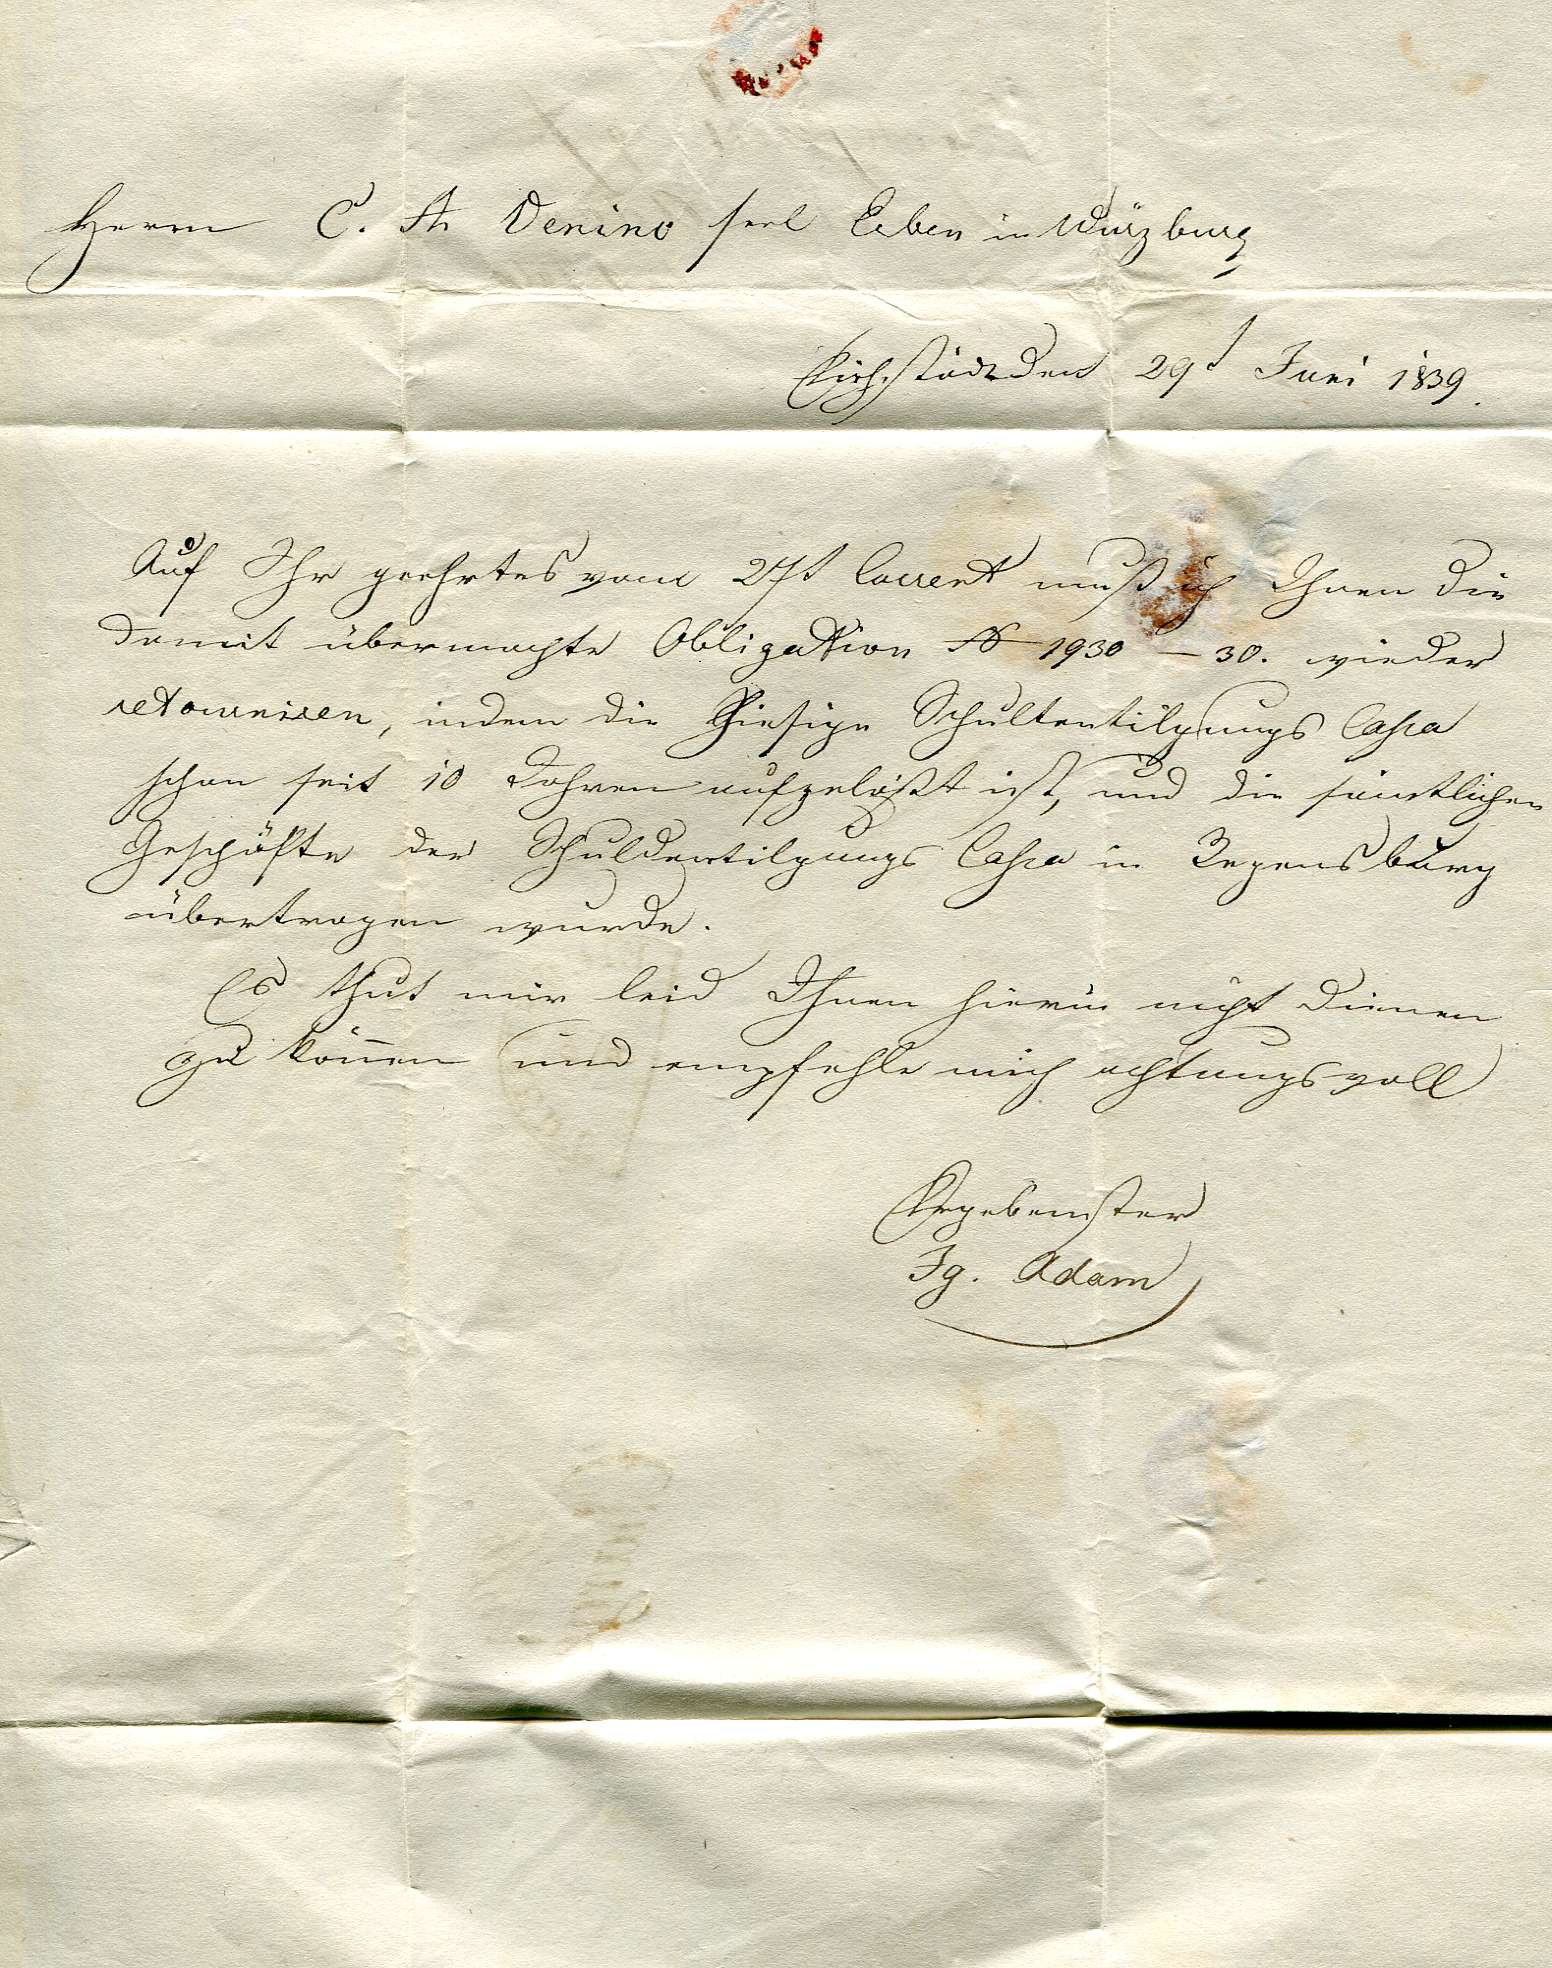 Herrn C. A. Venino seel Erben in Würzburg
Eichstädt den 29t Juni 1839.
Auf Ihr geehrtes vom 27t Current muß ich Ihnen die
damit übermachte Obligation 1930 – 30. wieder
retourniren, indem die hiesige Schultentilgungs Cassa
schon seit 10 Jahren aufgelößt ist, und die sämtlichen
Geschäfte der Schuldentilgungs Cassa in Regensburg
übertragen wurde.
Es thut mir leid Ihnen hierin nicht dienen
zu können und empfehle mich achtungsvoll
Ergebenster
Ig. Adam